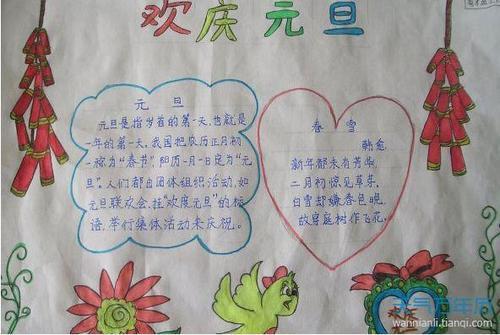 欢庆元旦
元旦
元旦是指岁首的第一天,也就是
一年的第一天,我国把农历正月初
一称为“春节”,阳历一月一日定为“元
旦”。人们都由团体组织活动,如
元旦联欢会,挂“欢度元旦”的标
语,举行集体活动来庆祝。
春雪
韩愈
新年都未有芳华,
二月初惊见草芽。
白雪却嫌春色晚,
故穿庭树作飞花。
天气万年历
wannianli.tianqi.com